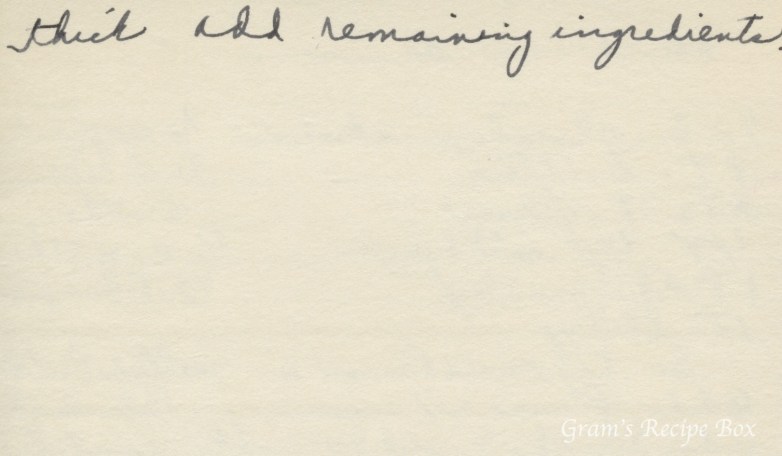 thick add remaining ingredients.
Gram's Recipe Box